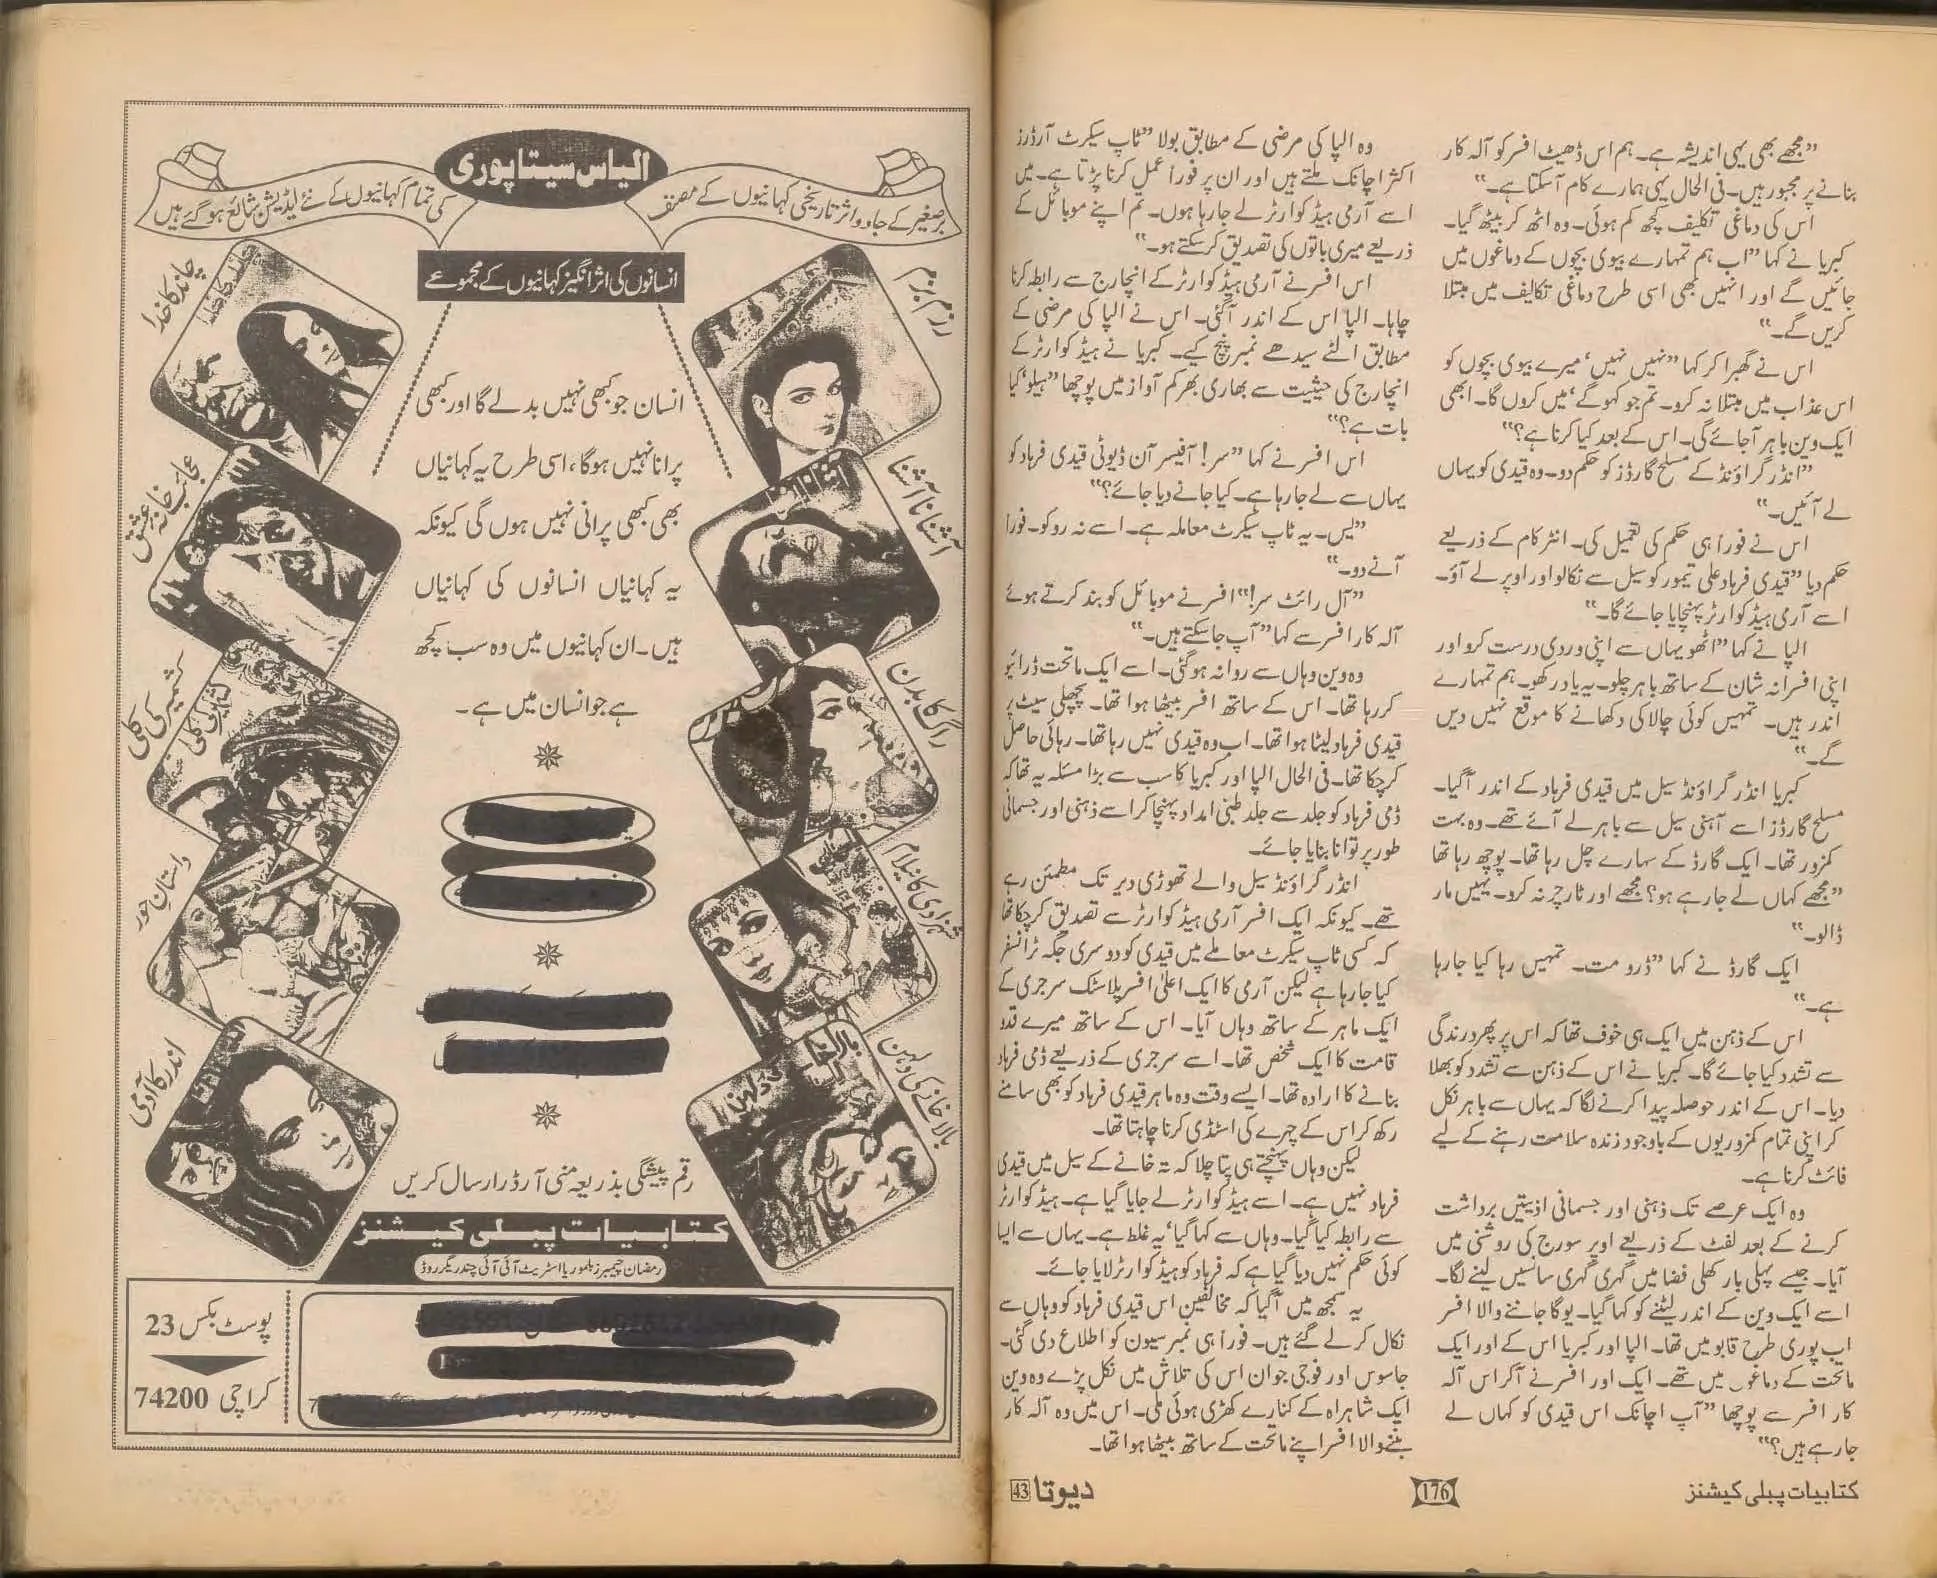 "مجھے بھی یہی اندیشہ ہے۔ ہم اس ڈھیٹ افسر کو آلہ کار
بنانے پر مجبور ہیں۔ فی الحال یہی ہمارے کام آسکتا ہے۔"
اس کی دماغی تکلیف کچھ کم ہوئی۔ وہ اٹھ کر بیٹھ گیا۔
کبریا نے کہا "اب ہم تمہارے بیوی بچوں کے دماغوں میں
جائیں گے اور انہیں بھی اسی طرح دماغی تکالیف میں مبتلا
کریں گے۔"
اس نے گھبرا کر کہا "نہیں نہیں' میرے بیوی بچوں کو
اس عذاب میں مبتلا نہ کرو۔ تم جو کہو گے' میں کروں گا۔ ابھی
ایک وین باہر آجائے گی۔ اس کے بعد کیا کرنا ہے؟"
"انڈر گراؤنڈ کے مسلح گارڈز کو حکم دو۔ وہ قیدی کو یہاں
لے آئیں۔"
اس نے فوراً ہی حکم کی تعمیل کی۔ انٹر کام کے ذریعے
حکم دیا "قیدی فرہاد علی تیمور کو سیل سے نکالو اور اوپر لے آؤ۔
اسے آرمی ہیڈ کوارٹر پہنچایا جائے گا۔"
الپا نے کہا "اٹھو یہاں سے اپنی وردی درست کرو اور
اپنی افسرانہ شان کے ساتھ باہر چلو۔ یہ یاد رکھو۔ ہم تمہارے
اندر ہیں۔ تمہیں کوئی چالاکی دکھانے کا موقع نہیں دیں
گے۔"
کبریا انڈر گراؤنڈ سیل میں قیدی فرہاد کے اندر آگیا۔
مسلح گارڈز اسے آہنی سیل سے باہر لے آئے تھے۔ وہ بہت
کمزور تھا۔ ایک گارڈ کے سہارے چل رہا تھا۔ پوچھ رہا تھا
"مجھے کہاں لے جارہے ہو؟ مجھے اور ٹارچر نہ کرو۔ یہیں مار
ڈالو۔"
ایک گارڈ نے کہا "ڈرو مت۔ تمہیں رہا کیا جارہا
ہے۔"
اس کے ذہن میں ایک ہی خوف تھا کہ اس پر پھر درندگی
سے تشدد کیا جائے گا۔ کبریا نے اس کے ذہن سے تشدد کو بھلا
دیا۔ اس کے اندر حوصلہ پیدا کرنے لگا کہ یہاں سے باہر نکل
کر اپنی تمام کمزوریوں کے باوجود زندہ سلامت رہنے کے لیے
فائٹ کرنا ہے۔
وہ ایک عرصے تک ذہنی اور جسمانی اذیتیں برداشت
کرنے کے بعد لفٹ کے ذریعے اوپر سورج کی روشنی میں
آیا۔ جیسے پہلی بار کھلی فضا میں گہری گہری سانسیں لینے لگا۔
اسے ایک وین کے اندر لیٹنے کو کہا گیا۔ یوگا جاننے والا افسر
اب پوری طرح قابو میں تھا۔ الپا اور کبریا اس کے اور ایک
ماتحت کے دماغوں میں تھے۔ ایک اور افسر نے آکر اس آلہ
کار افسر سے پوچھا "آپ اچانک اس قیدی کو کہاں لے
جارہے ہیں؟"
وہ الپا کی مرضی کے مطابق بولا "ٹاپ سیکرٹ آرڈرز
اکثر اچانک ملتے ہیں اور ان پر فوراً عمل کرنا پڑتا ہے۔ میں
اسے آرمی ہیڈ کوارٹر لے جارہا ہوں۔ تم اپنے موبائل کے
ذریعے میری باتوں کی تصدیق کرسکتے ہو۔"
اس افسر نے آرمی ہیڈ کوارٹر کے انچارج سے رابطہ کرنا
چاہا۔ الپا اس کے اندر آگئی۔ اس نے الپا کی مرضی کے
مطابق الٹے سیدھے نمبر پنچ کیے۔ کبریا نے ہیڈ کوارٹر کے
انچارج کی حیثیت سے بھاری بھرکم آواز میں پوچھا "ہیلو' کیا
بات ہے؟"
اس افسر نے کہا "سر! آفیسر آن ڈیوٹی قیدی فرہاد کو
یہاں سے لے جارہا ہے۔ کیا جانے دیا جائے؟"
"یس۔ یہ ٹاپ سیکرٹ معاملہ ہے۔ اسے نہ روکو۔ فوراً
آنے دو۔"
"آل رائٹ سر!" افسر نے موبائل کو بند کرتے ہوئے
آلہ کار افسر سے کہا "آپ جاسکتے ہیں۔"
وہ وین وہاں سے روانہ ہوگئی۔ اسے ایک ماتحت ڈرائیو
کررہا تھا۔ اس کے ساتھ افسر بیٹھا ہوا تھا۔ پچھلی سیٹ پر
قیدی فرہاد لیٹا ہوا تھا۔ اب وہ قیدی نہیں رہا تھا۔ رہائی حاصل
کرچکا تھا۔ فی الحال الپا اور کبریا کا سب سے بڑا مسئلہ یہ تھا کہ
ڈمی فرہاد کو جلد سے جلد طبی امداد پہنچا کر اسے ذہنی اور جسمانی
طور پر توانا بنایا جائے۔
انڈر گراؤنڈ سیل والے تھوڑی دیر تک مطمئن رہے
تھے۔ کیونکہ ایک افسر آرمی ہیڈ کوارٹر سے تصدیق کرچکا تھا
کہ کسی ٹاپ سیکرٹ معاملے میں قیدی کو دوسری جگہ ٹرانسفر
کیا جارہا ہے لیکن آرمی کا ایک اعلیٰ افسر پلاسٹک سرجری کے
ایک ماہر کے ساتھ وہاں آیا۔ اس کے ساتھ میرے قد و
قامت کا ایک شخص تھا۔ اسے سرجری کے ذریعے ڈمی فرہاد
بنانے کا ارادہ تھا۔ ایسے وقت وہ ماہر قیدی فرہاد کو بھی سامنے
رکھ کر اس کے چہرے کی اسٹڈی کرنا چاہتا تھا۔
لیکن وہاں پہنچتے ہی پتا چلا کہ تہ خانے کے سیل میں قیدی
فرہاد نہیں ہے۔ اسے ہیڈ کوارٹر لے جایا گیا ہے۔ ہیڈ کوارٹر
سے رابطہ کیا گیا۔ وہاں سے کہا گیا' یہ غلط ہے۔ یہاں سے ایسا
کوئی حکم نہیں دیا گیا ہے کہ فرہاد کو ہیڈ کوارٹر لایا جائے۔
یہ سمجھ میں آگیا کہ مخالفین اس قیدی فرہاد کو وہاں سے
نکال کر لے گئے ہیں۔ فوراً ہی نمبر سیون کو اطلاع دی گئی۔
جاسوس اور فوجی جوان اس کی تلاش میں نکل پڑے وہ وین
ایک شاہراہ کے کنارے کھڑی ہوئی ملی۔ اس میں وہ آلہ کار
بننے والا افسر اپنے ماتحت کے ساتھ بیٹھا ہوا تھا۔
کتابیات پبلی کیشنز
176
دیوتا 43
الیاس سیتاپوری
برصغیر کے جادو اثر تاریخی کہانیوں کے مصنف
کی تمام کہانیوں کے نئے ایڈیشن شائع ہو گئے ہیں
انسانوں کی اثر انگیز کہانیوں کے مجموعے
رزم بزم
چاند کا خدا
چاند کا خدا
انسان جو کبھی نہیں بدلے گا اور کبھی
پرانا نہیں ہوگا، اسی طرح یہ کہانیاں
بھی کبھی پرانی نہیں ہوں گی کیونکہ
یہ کہانیاں انسانوں کی کہانیاں
ہیں۔ ان کہانیوں میں وہ سب کچھ
ہے جو انسان میں ہے۔
آشنا نا آشنا
عجائب خانہ عشق
راگ کا بدن
کشمیر کی کلی
کشمیر کی کلی
شہزادی کا نیلام
داستانِ حور
بالاخانے کی دلہن
اندر کا آدمی
رقم پیشگی بذریعہ منی آرڈر ارسال کریں
کتابیات پبلی کیشنز
رمضان چیمبرز بلموریا اسٹریٹ آئی آئی چندریگر روڈ
پوسٹ بکس 23
کراچی 74200